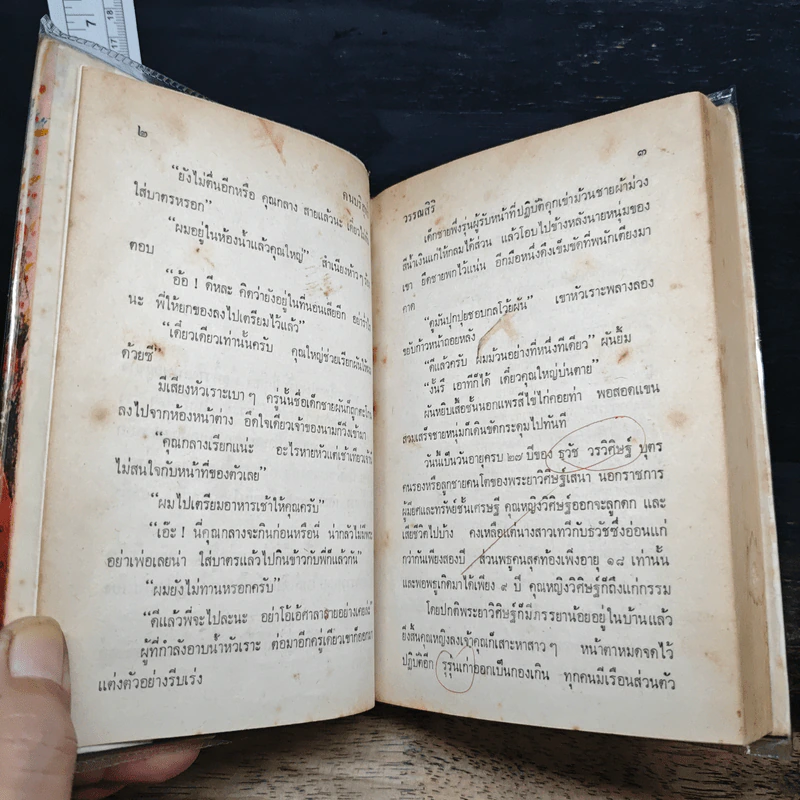 7
18
17
๒
คนบริ
“ยังไม่ตื่นอีกหรือ คุณกลาง สายแล้วนะ เดี๋ยวไม่
ใส่บาตรหรอก”
“ผมอยู่ในห้องน้ำแล้วคุณใหญ่” สำเนียงห้าวๆ
ตอบ
“อ้อ ! ดีหละ คิดว่ายังอยู่ในที่นอนเสียอีก อย่า
นะ พี่ให้ยกของลงไปเตรียมไว้แล้ว”
“เดี๋ยวเดียวเท่านั้นครับ คุณใหญ่ช่วยเรียกผัน
ด้วยซี”
มีเสียงหัวเราะเบาๆ ครู่นั้นชื่อเด็กชายผันก็ถูก
ลงไปจากห้องหน้าต่าง อึดใจเดียวเจ้าของนามก็วิ่งเข้ามา
“คุณกลางเรียกแน่ะ อะไรหายหัวแต่เช้าเทียว
ไม่สนใจกับหน้าที่ของตัวเลย”
“ผมไปเตรียมอาหารเช้าให้คุณครับ”
“เอ๊ะ ! นี่คุณกลางจะกินก่อนหรือนี่ น่ากลัวไม่
อย่าเพ่อเลยน่า ใส่บาตรแล้วไปกินข้าวกับพี่ก็แล้วกัน”
“ผมยังไม่ทานหรอกครับ”
“ดีแล้วพี่จะไปละนะ อย่าโอ้เอ้ศาลารายอย่างเคย
ผู้ที่กำลังอาบน้ำหัวเราะ ต่อมาอีกครู่เดียวเขาก็ออกมา
แต่งตัวอย่างรีบเร่ง
๓
วรรณสิริ
เด็กชายพึ่งรุ่นผู้รับหน้าที่ปฏิบัติคุกเข่าม้วนชายผ้าม่วง
สีน้ำเงินแก่ให้กลมได้ส่วน แล้วโอบไปข้างหลังนายหนุ่มของ
เขา ยึดชายพกไว้แน่น อีกมือหนึ่งดึงเข็มขัดที่พนักเตียงมา
คาด
“คุมันปุกปุยชอบกลโว้ยผัน” เขาหัวเราะพลางลอง
ขยับก้าวหน้าถอยหลัง
“ดีแล้วครับ ผมม้วนอย่างที่หนึ่งทีเดียว” ผันยิ้ม
“งั้นรึ เอาทีก็ได้ เดี๋ยวคุณใหญ่บ่นตาย”
ผันหยิบเสื้อชั้นนอกแพรสีไข่ไก่คอยท่า พอสอดแขน
สวมเสร็จชายหนุ่มก็เดินขัดกระดุมไปทันที
วันนี้เป็นวันอายุครบ ๒๗ ปีของ ธวัช วรวิศิษฐ์ บุตร
คนรองหรือลูกชายคนโตของพระยาวิศิษฐ์เสนา นอกราชการ
ผู้มียศและทรัพย์ชั้นเศรษฐี คุณหญิงวิศิษฐ์ออกจะลูกดก และ
เสียชีวิตไปบ้าง คงเหลือแต่นางสาวเทวีกับธวัชซึ่งอ่อนแก่
กว่ากันเพียงสองปี ส่วนพธูคนสุดท้องเพิ่งอายุ ๑๘ เท่านั้น
และพอพธูเกิดมาได้เพียง ๙ ปี คุณหญิงวิศิษฐ์ก็ถึงแก่กรรม
โดยปกติพระยาวิศิษฐ์ก็มีภรรยาน้อยอยู่ในบ้านแล้ว
ยิ่งสิ้นคุณหญิงลงเจ้าคุณก็เสาะหาสาวๆ หน้าตาหมดจดไว้
ปฏิบัติอีก รุ่นเก่าออกเป็นกองเกิน ทุกคนมีเรือนส่วนตัว